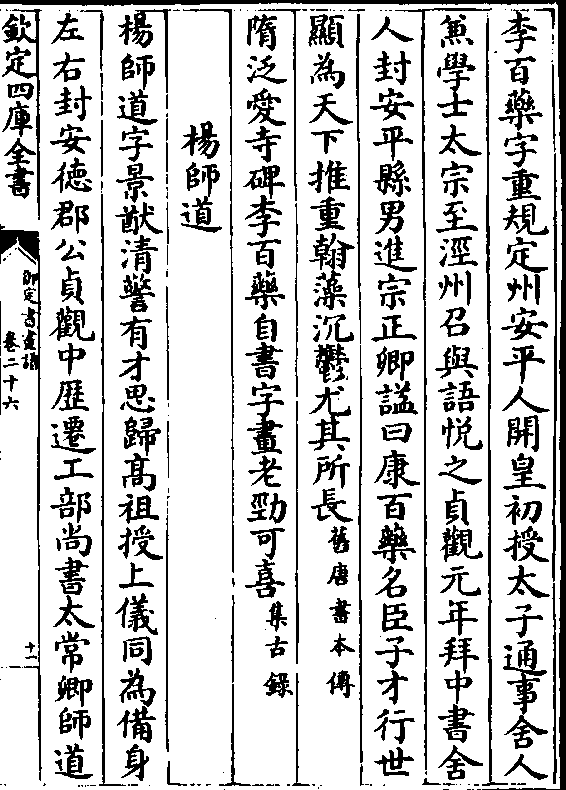 李百藥字重規定州安平人開皇初授太子通事舍人
兼學士太宗至涇州召與語悦之貞觀元年拜中書舍
人封安平縣男進宗正卿諡曰康百藥名臣子才行世
顯為天下推重翰藻沉鬱尤其所長舊唐書本傳
隋泛愛寺碑李百藥自書字畫老勁可喜集古錄
楊師道
楊師道字景猷清警有才思歸髙祖授上儀同為備身
左右封安德郡公貞觀中歴遷工部尚書太常卿師道
欽定四庫全書
御定書畫譜
卷二十六
十一